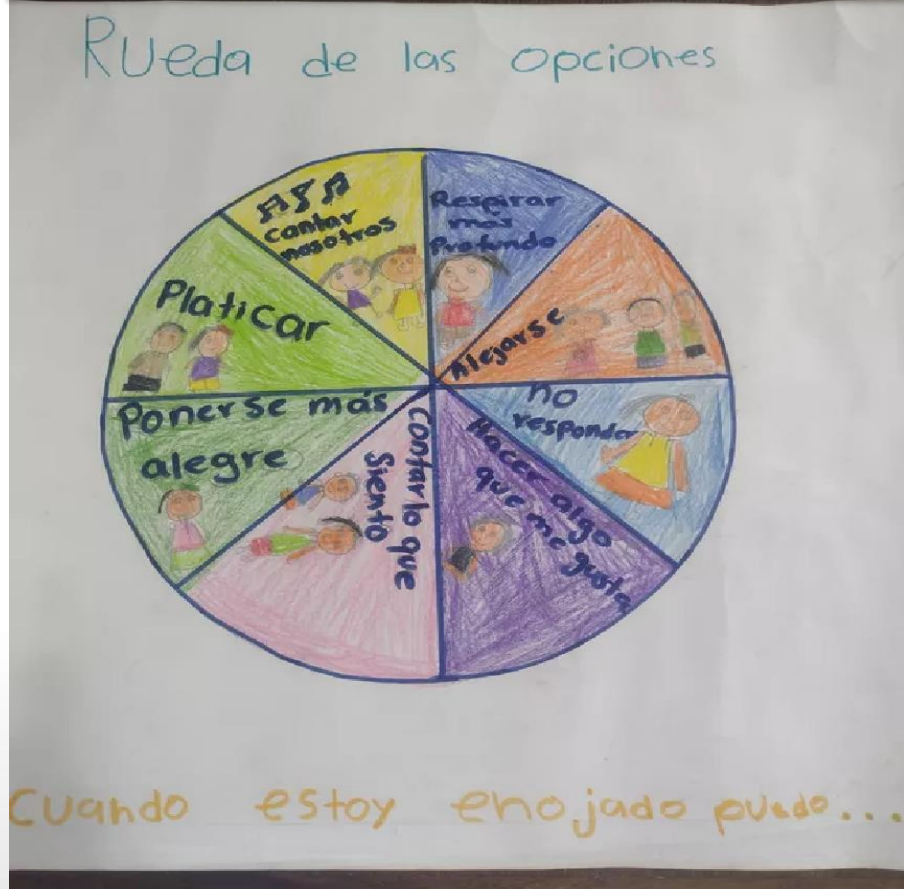 Rueda de las opciones
cantar
nosotros
Respirar
más
Profundo
Alejarse
no
responder
Hacer algo
que me gusta
Contar lo que
Siento
Ponerse más
alegre
Platicar
Cuando estoy enojado puedo...